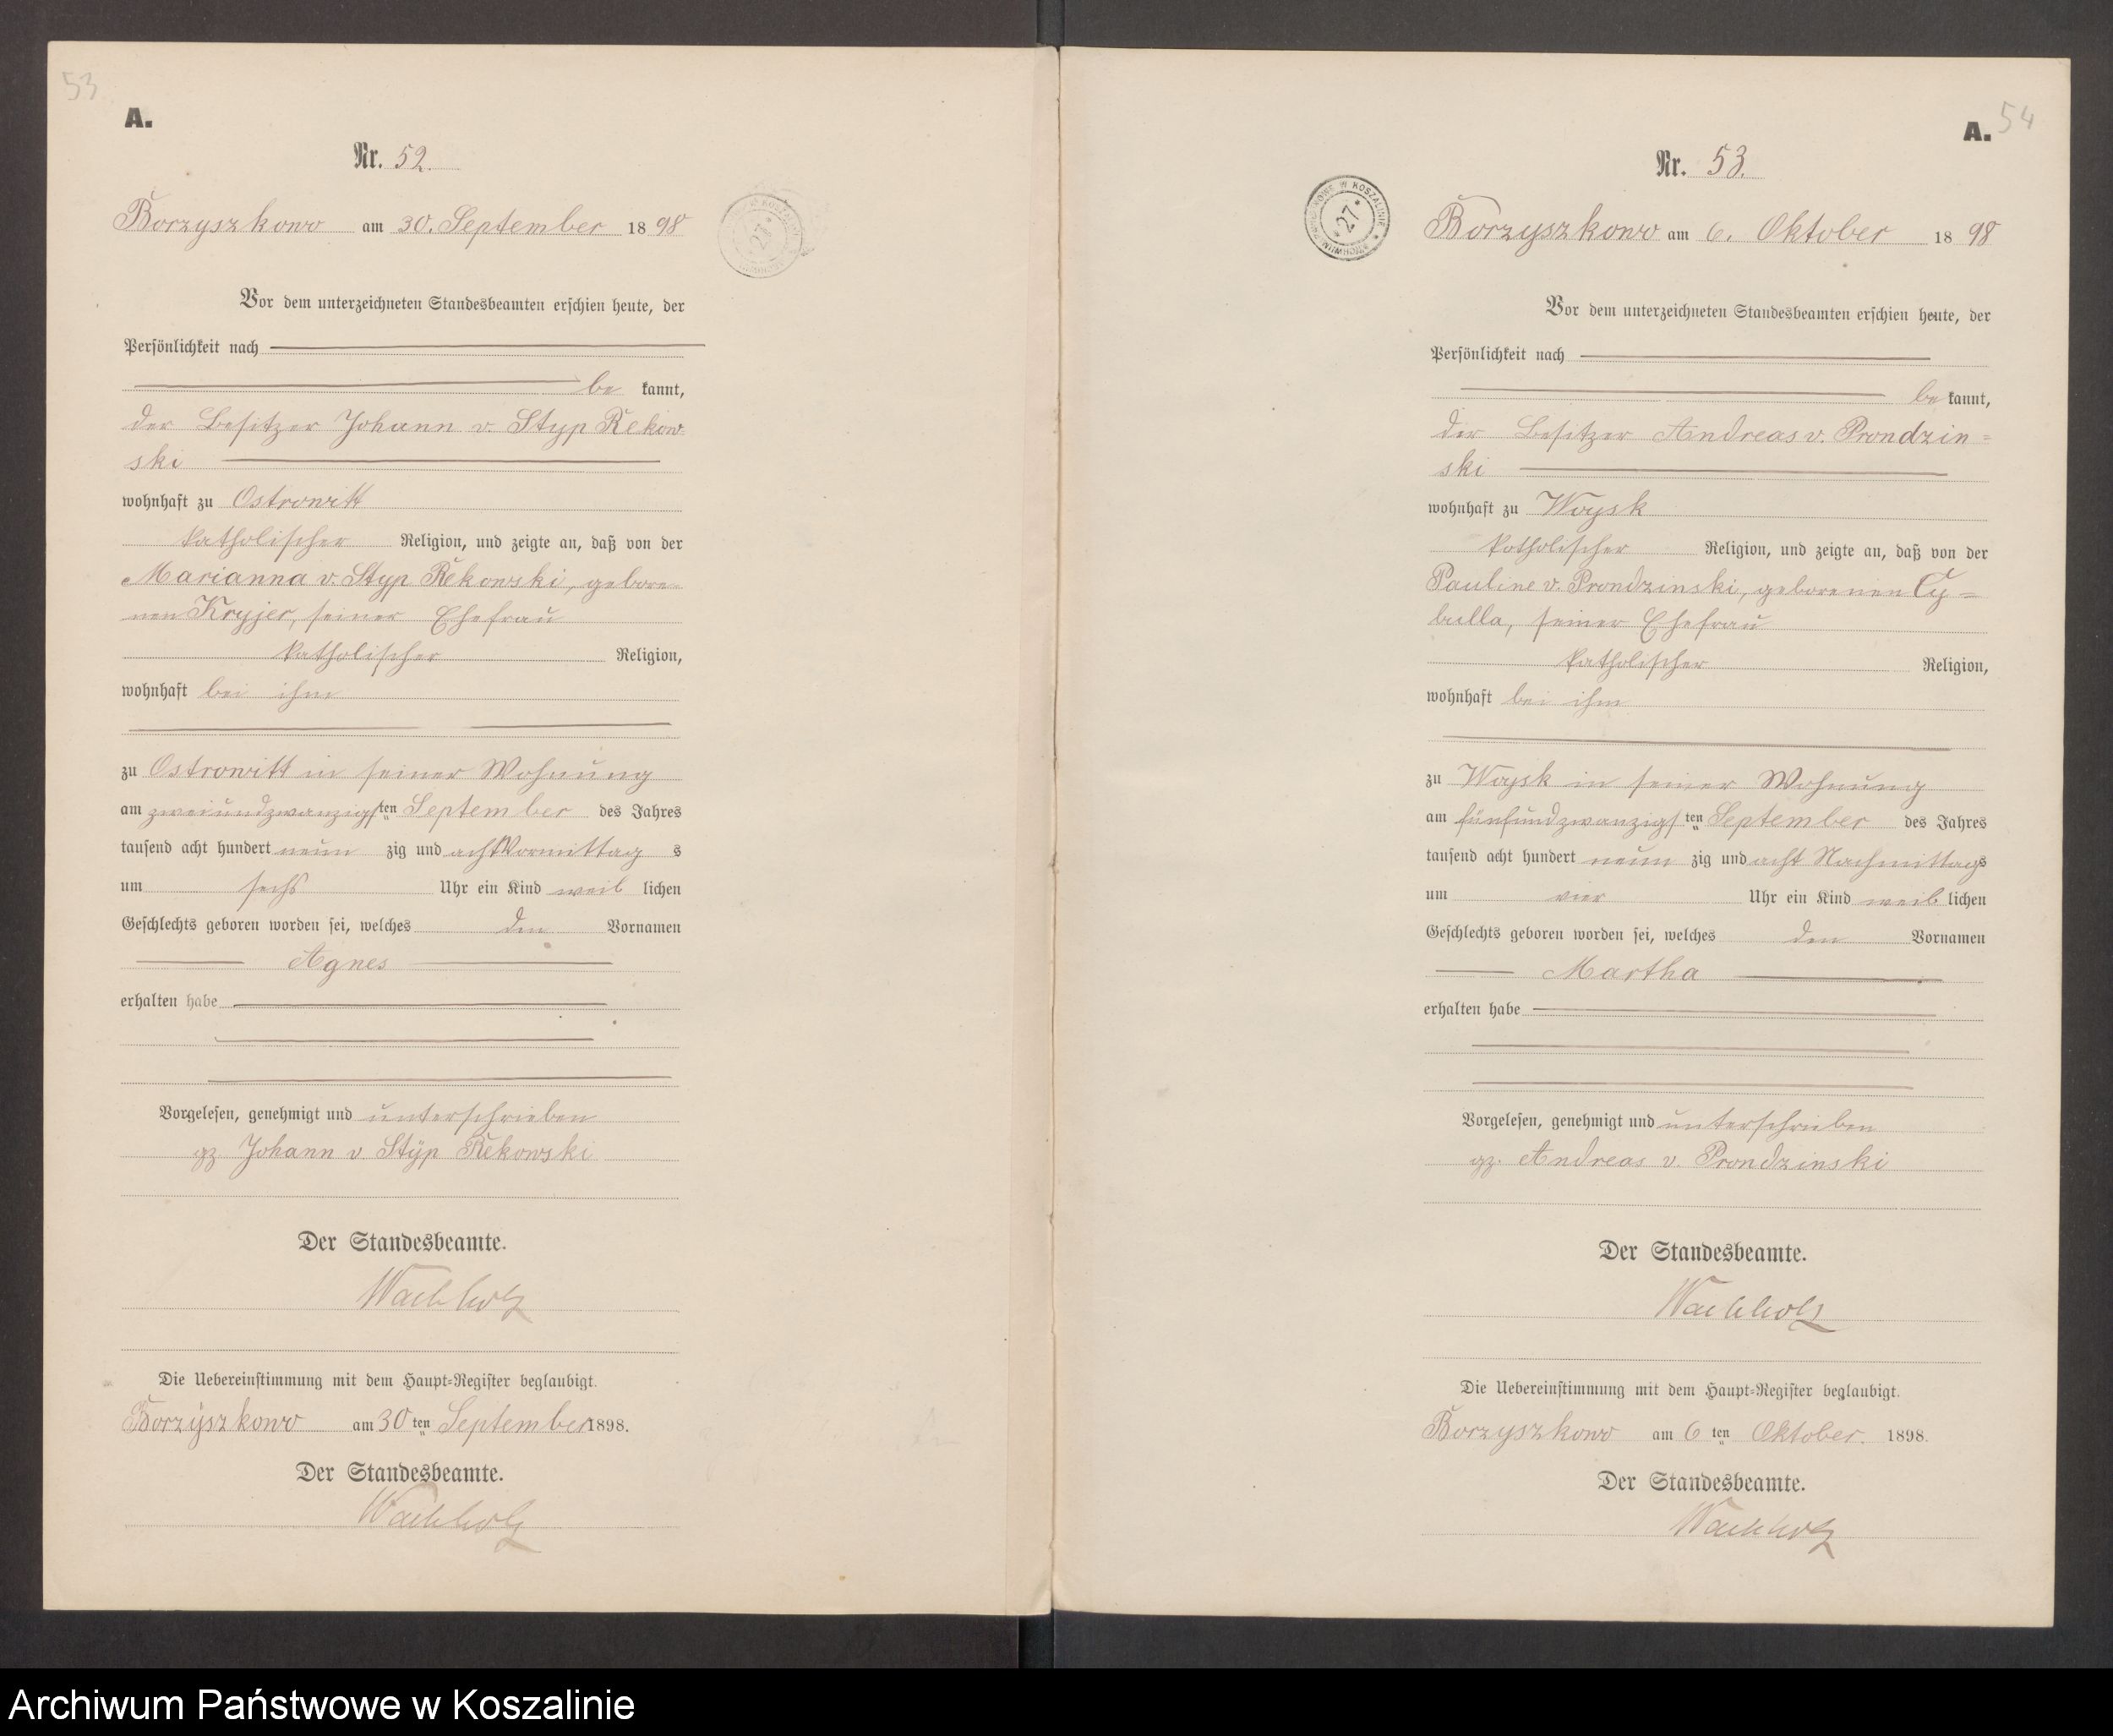 53
A.
Nr. 52.
Borzyszkowo am 30. September 1898
Vor dem unterzeichneten Standesbeamten erschien heute, der
Persönlichkeit nach
be kannt,
der Besitzer Johann v Styp Rekow-
ski
wohnhaft zu Ostrowitt
katholischer Religion, und zeigte an, daß von der
Marianna v. Styp Rekowski, gebore-
nen Kryjer, seiner Ehefrau
katholischer Religion,
wohnhaft bei ihm
zu Ostrowitt in seiner Wohnung
am zweiundzwanzigsten September des Jahres
tausend acht hundert neun zig und acht Vormittag s
um sechs Uhr ein Kind weib lichen
Geschlechts geboren worden sei, welches den Vornamen
Agnes
erhalten habe
Vorgelesen, genehmigt und unterschrieben
gz Johann v Styp Rekowski
Der Standesbeamte.
Wachholz
Die Uebereinstimmung mit dem Haupt-Register beglaubigt.
Borzyszkowo am 30 ten September 1898.
Der Standesbeamte.
Wachholz
54
A.
Nr. 53.
ARCHIWUM PAŃSTWOWE W KOSZALINIE
* 27 *
Borzyszkowo am 6. Oktober 1898
Vor dem unterzeichneten Standesbeamten erschien heute, der
Persönlichkeit nach
be kannt,
der Besitzer Andreas v. Prondzin=
ski
wohnhaft zu Woysk
katholischer Religion, und zeigte an, daß von der
Pauline v. Prondzinski, geborenen Cy=
bulla, seiner Ehefrau
katholischer Religion,
wohnhaft bei ihm
zu Woysk in seiner Wohnung
am fünfundzwanzigs ten September des Jahres
tausend acht hundert neun zig und acht Nachmittags
um vier Uhr ein Kind weib lichen
Geschlechts geboren worden sei, welches den Vornamen
Martha
erhalten habe
Vorgelesen, genehmigt und unterschrieben
gz. Andreas v. Prondzinski
Der Standesbeamte.
Wachholz
Die Uebereinstimmung mit dem Haupt-Register beglaubigt.
Borzyszkowo am 6 ten Oktober. 1898.
Der Standesbeamte.
Wachholz
Archiwum Państwowe w Koszalinie